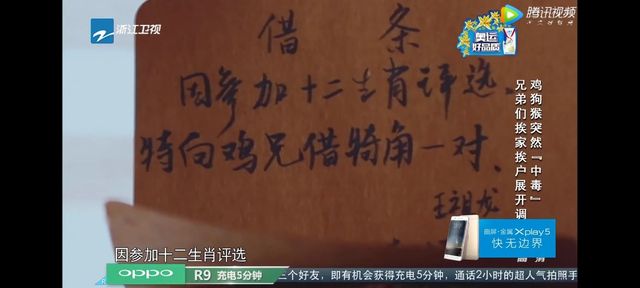 浙江卫视
腾讯视频
奥运
好品质
借条
因参加十二生肖评选
特向鸡兄借犄角一对、
王祖龙
鸡狗猴突然『中毒』
兄弟们挨家挨户展开调
曲屏·金属 Xplay5
快无边界
因参加十二生肖评选
oppo R9 充电5分钟 三个好友，即有机会获得充电5分钟，通话2小时的超人气拍照手